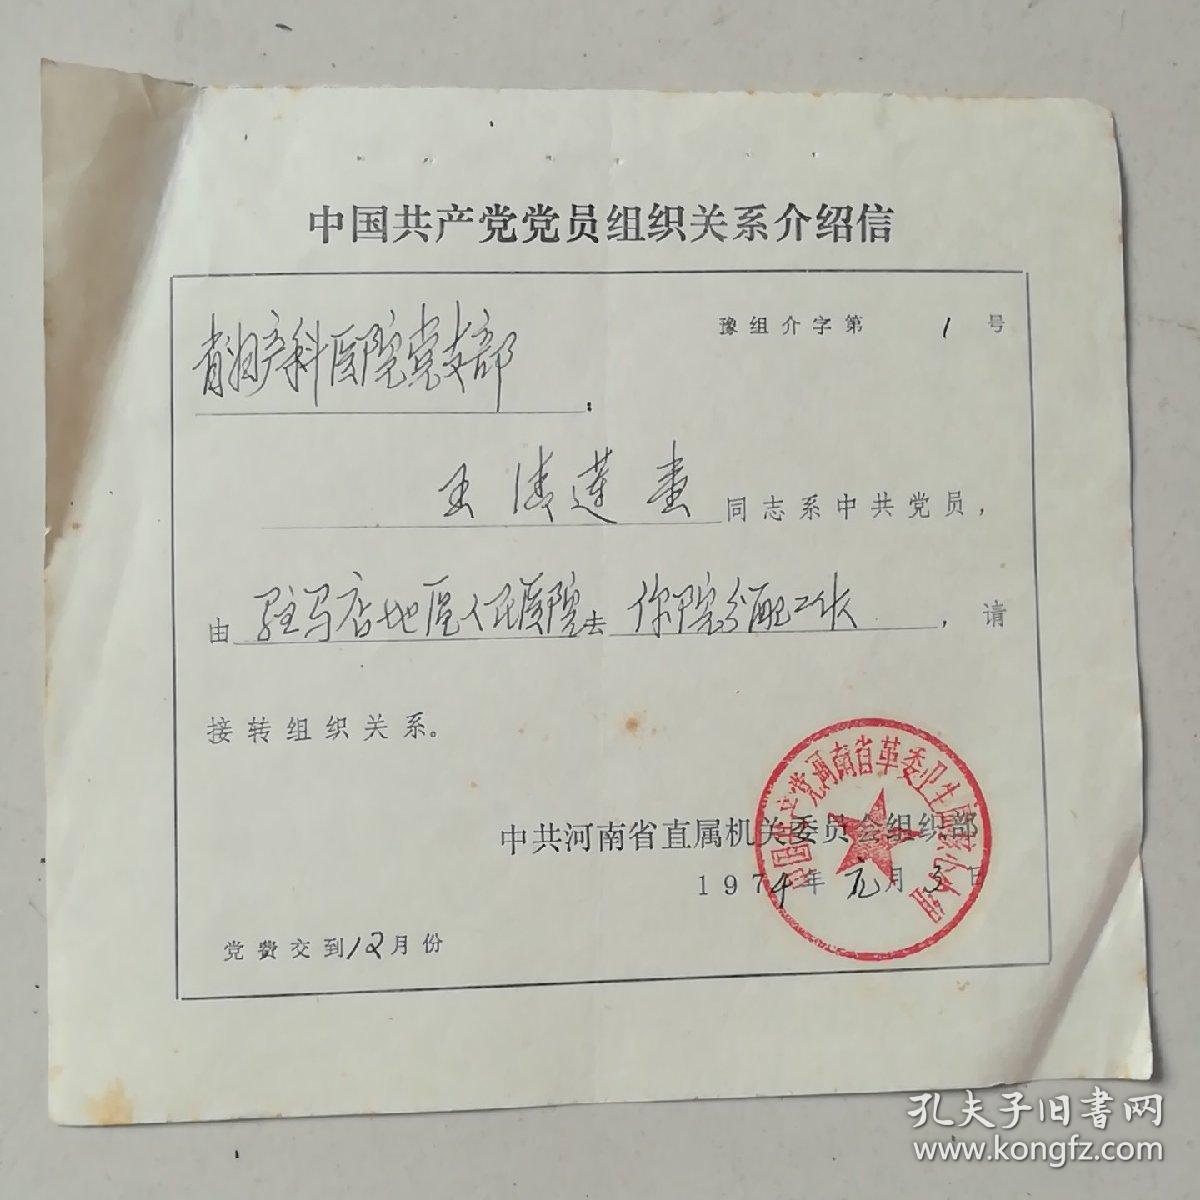 中国共产党党员组织关系介绍信
豫组介字第 1 号
省妇产科医院党支部：
王 莲 同志系中共党员，
由驻马店地区人民医院去你院分配工作，请
接转组织关系。
中共河南省直属机关委员会组织部
1974年元月3日
党费交到12月份
中国共产党河南省革委卫生局核心小组
孔夫子旧书网
www.kongfz.com